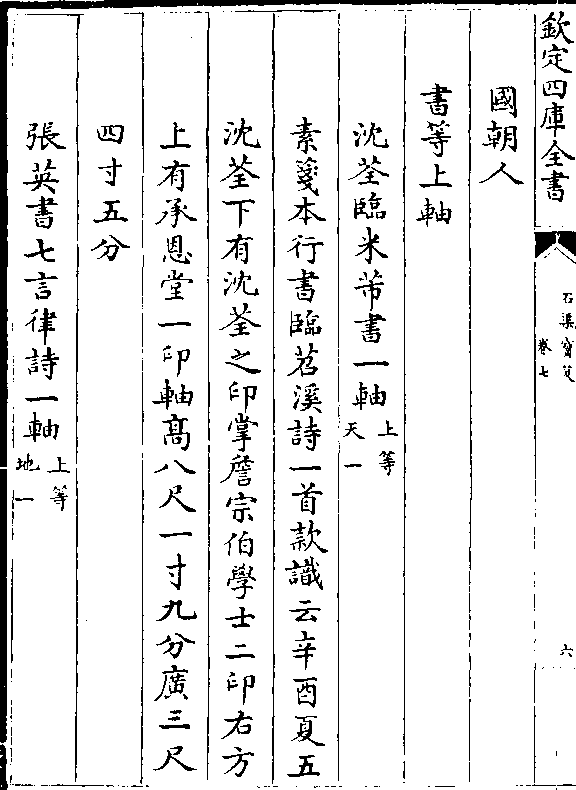 欽定四庫全書
石渠寶笈
卷七
六
國朝人
書等上軸
沈荃臨米芾書一軸 上等 天一
素箋本行書臨苕溪詩一首款識云辛酉夏五
沈荃下有沈荃之印掌詹宗伯學士二印右方
上有承恩堂一印軸髙八尺一寸九分廣三尺
四寸五分
張英書七言律詩一軸 上等 地一